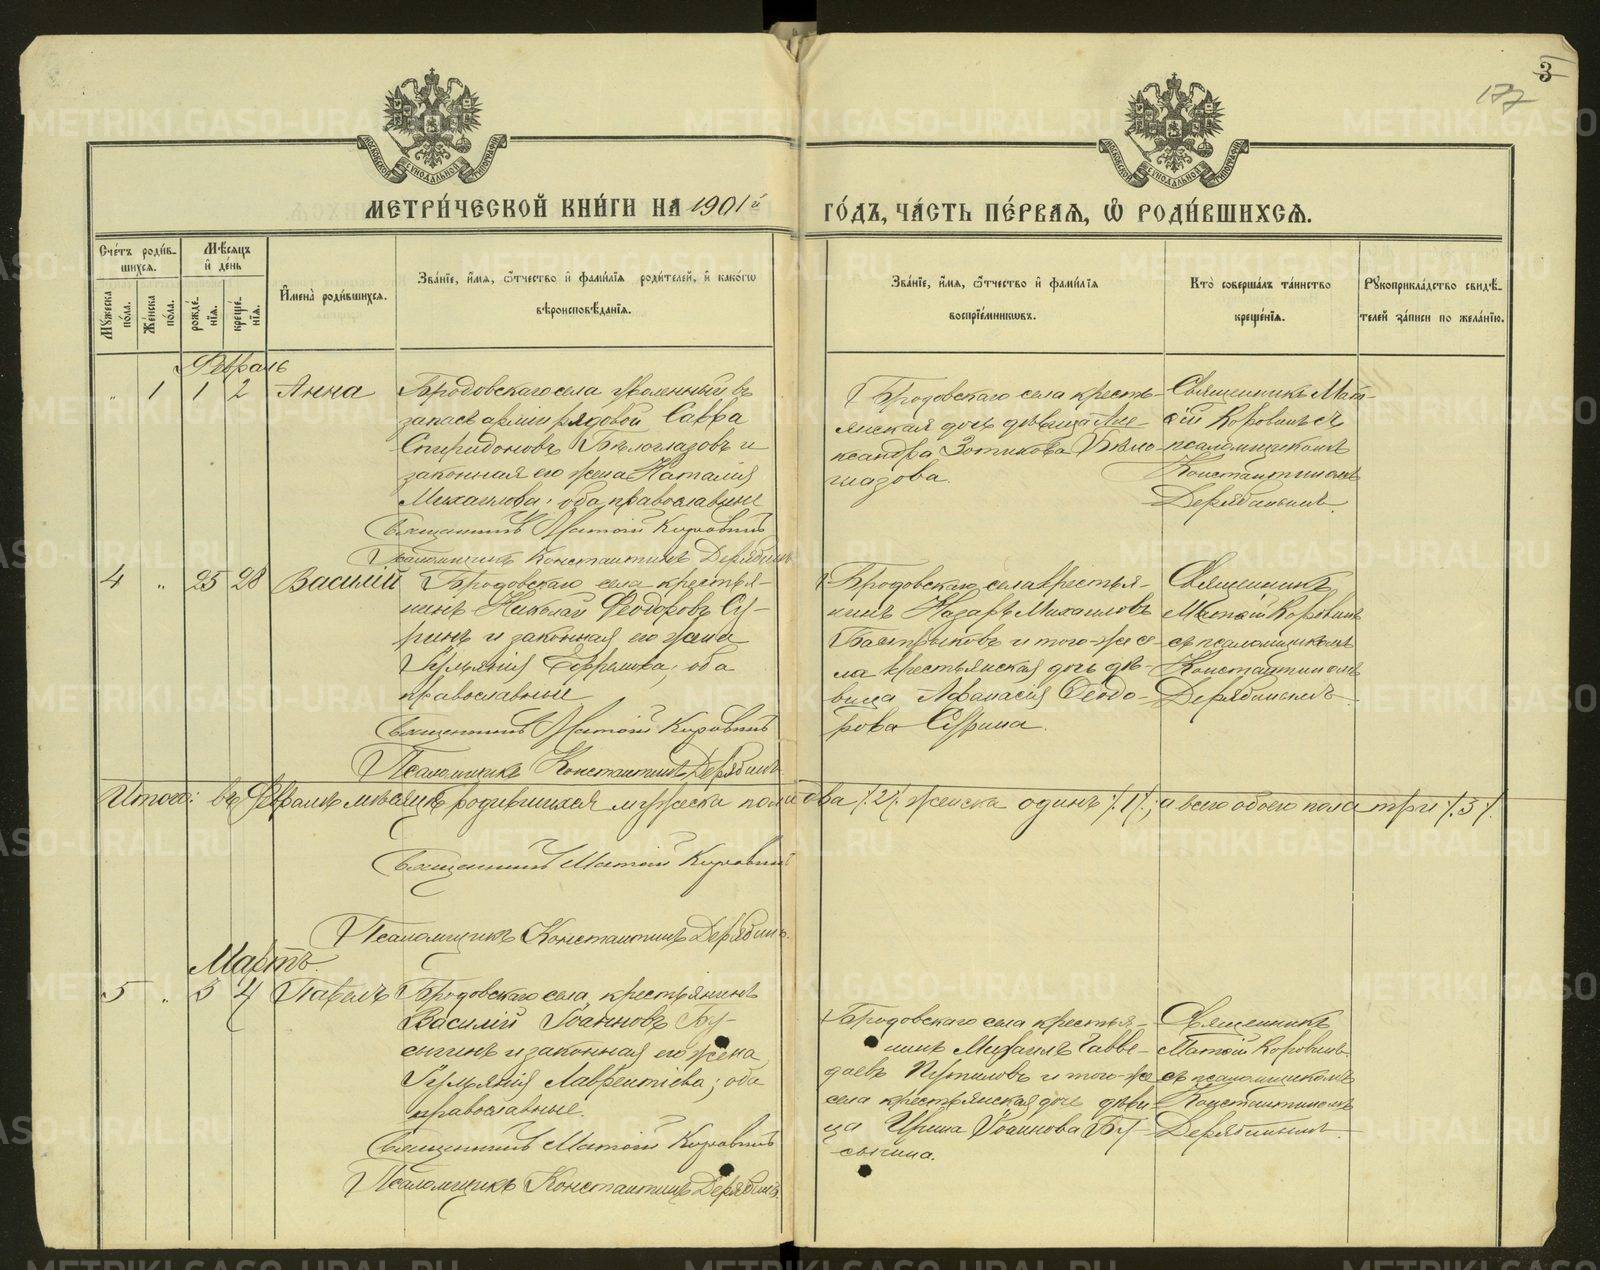 3
177
МЕТРИ́ЧЕСКОЙ КНИ́ГИ НА 1901й ГО́ДЪ, ЧА́СТЬ ПЕ́РВАЯ, Ѡ РОДИ́ВШИХСЯ.
Сче́тъ роди́вшихся.
Му́жеска по́ла.
Же́нска по́ла.
Мѣ́сяцъ и де́нь
рожде́нія.
креще́нія.
Имена̀ роди́вшихся.
Зва́ніе, и́мя, ѻ́тчество и фами́лія роди́телей, и како́гѡ
вѣроисповѣ́данія.
Зва́ніе, и́мя, ѻ́тчество и фами́лія
воспріе́мникѡвъ.
Кто̀ соверша́лъ та́инство
креще́нія.
Рукоприкла́дство свидѣ́-
телей за́писи по жела́нію.
Февраль
" 1 1 2 Анна
Бродовскаго села уволенный въ
запасъ арміи рядовой Савва
Спиридоновъ Бѣлоглазовъ и
законная его жена Наталія
Михаилова; оба православные
Священникъ Матѳій Коровинъ
Псаломщикъ Константинъ Дерябинъ
Бродовскаго села кресть-
янская дочь дѣвица Але-
ксандра Зотикова Бѣло-
глазова.
Священникъ Мат-
ѳій Коровинъ съ
псаломщикомъ
Константиномъ
Дерябинымъ.
4 " 25 28 Василій
Бродовскаго села крестья-
нинъ Николай Ѳеодоровъ Су-
ринъ и законная его жена
Іуліанія Ефремова; оба
православные
Священникъ Матѳій Коровинъ
Псаломщикъ Константинъ Дерябинъ
Бродовскаго села крестья-
нинъ Назаръ Михаиловъ
и того-же се-
ла крестьянская дочь дѣ-
вица Аѳанасія Ѳеодо-
рова Сурина.
Священникъ
Матѳій Коровинъ
съ псаломщикомъ
Константиномъ
Дерябинымъ
Итого: въ Февралѣ мѣсяцѣ родившихся мужеска пола два /.2/. женска одинъ /.1/.; а всего обоего пола три /.3/.
Священникъ Матѳій Коровинъ
Псаломщикъ Константинъ Дерябинъ.
Мартъ.
5 " 3 4 Павелъ
Бродовскаго села, крестьянинъ
Василій Іоанновъ Бу-
сыгинъ и законная его жена
Іуліанія Лаврентіева; оба
православные.
Священникъ Матѳій Коровинъ
Псаломщикъ Константинъ Дерябинъ.
Бродовскаго села крестья-
нинъ Михаилъ
Путиловъ и того-же
села крестьянская дочь дѣви-
ца Ирина Іоаннова Бу-
сыгина.
Священникъ
Матѳій Коровинъ
съ псаломщикомъ
Константиномъ
Дерябинымъ.
METRIKI.GASO-URAL.RU